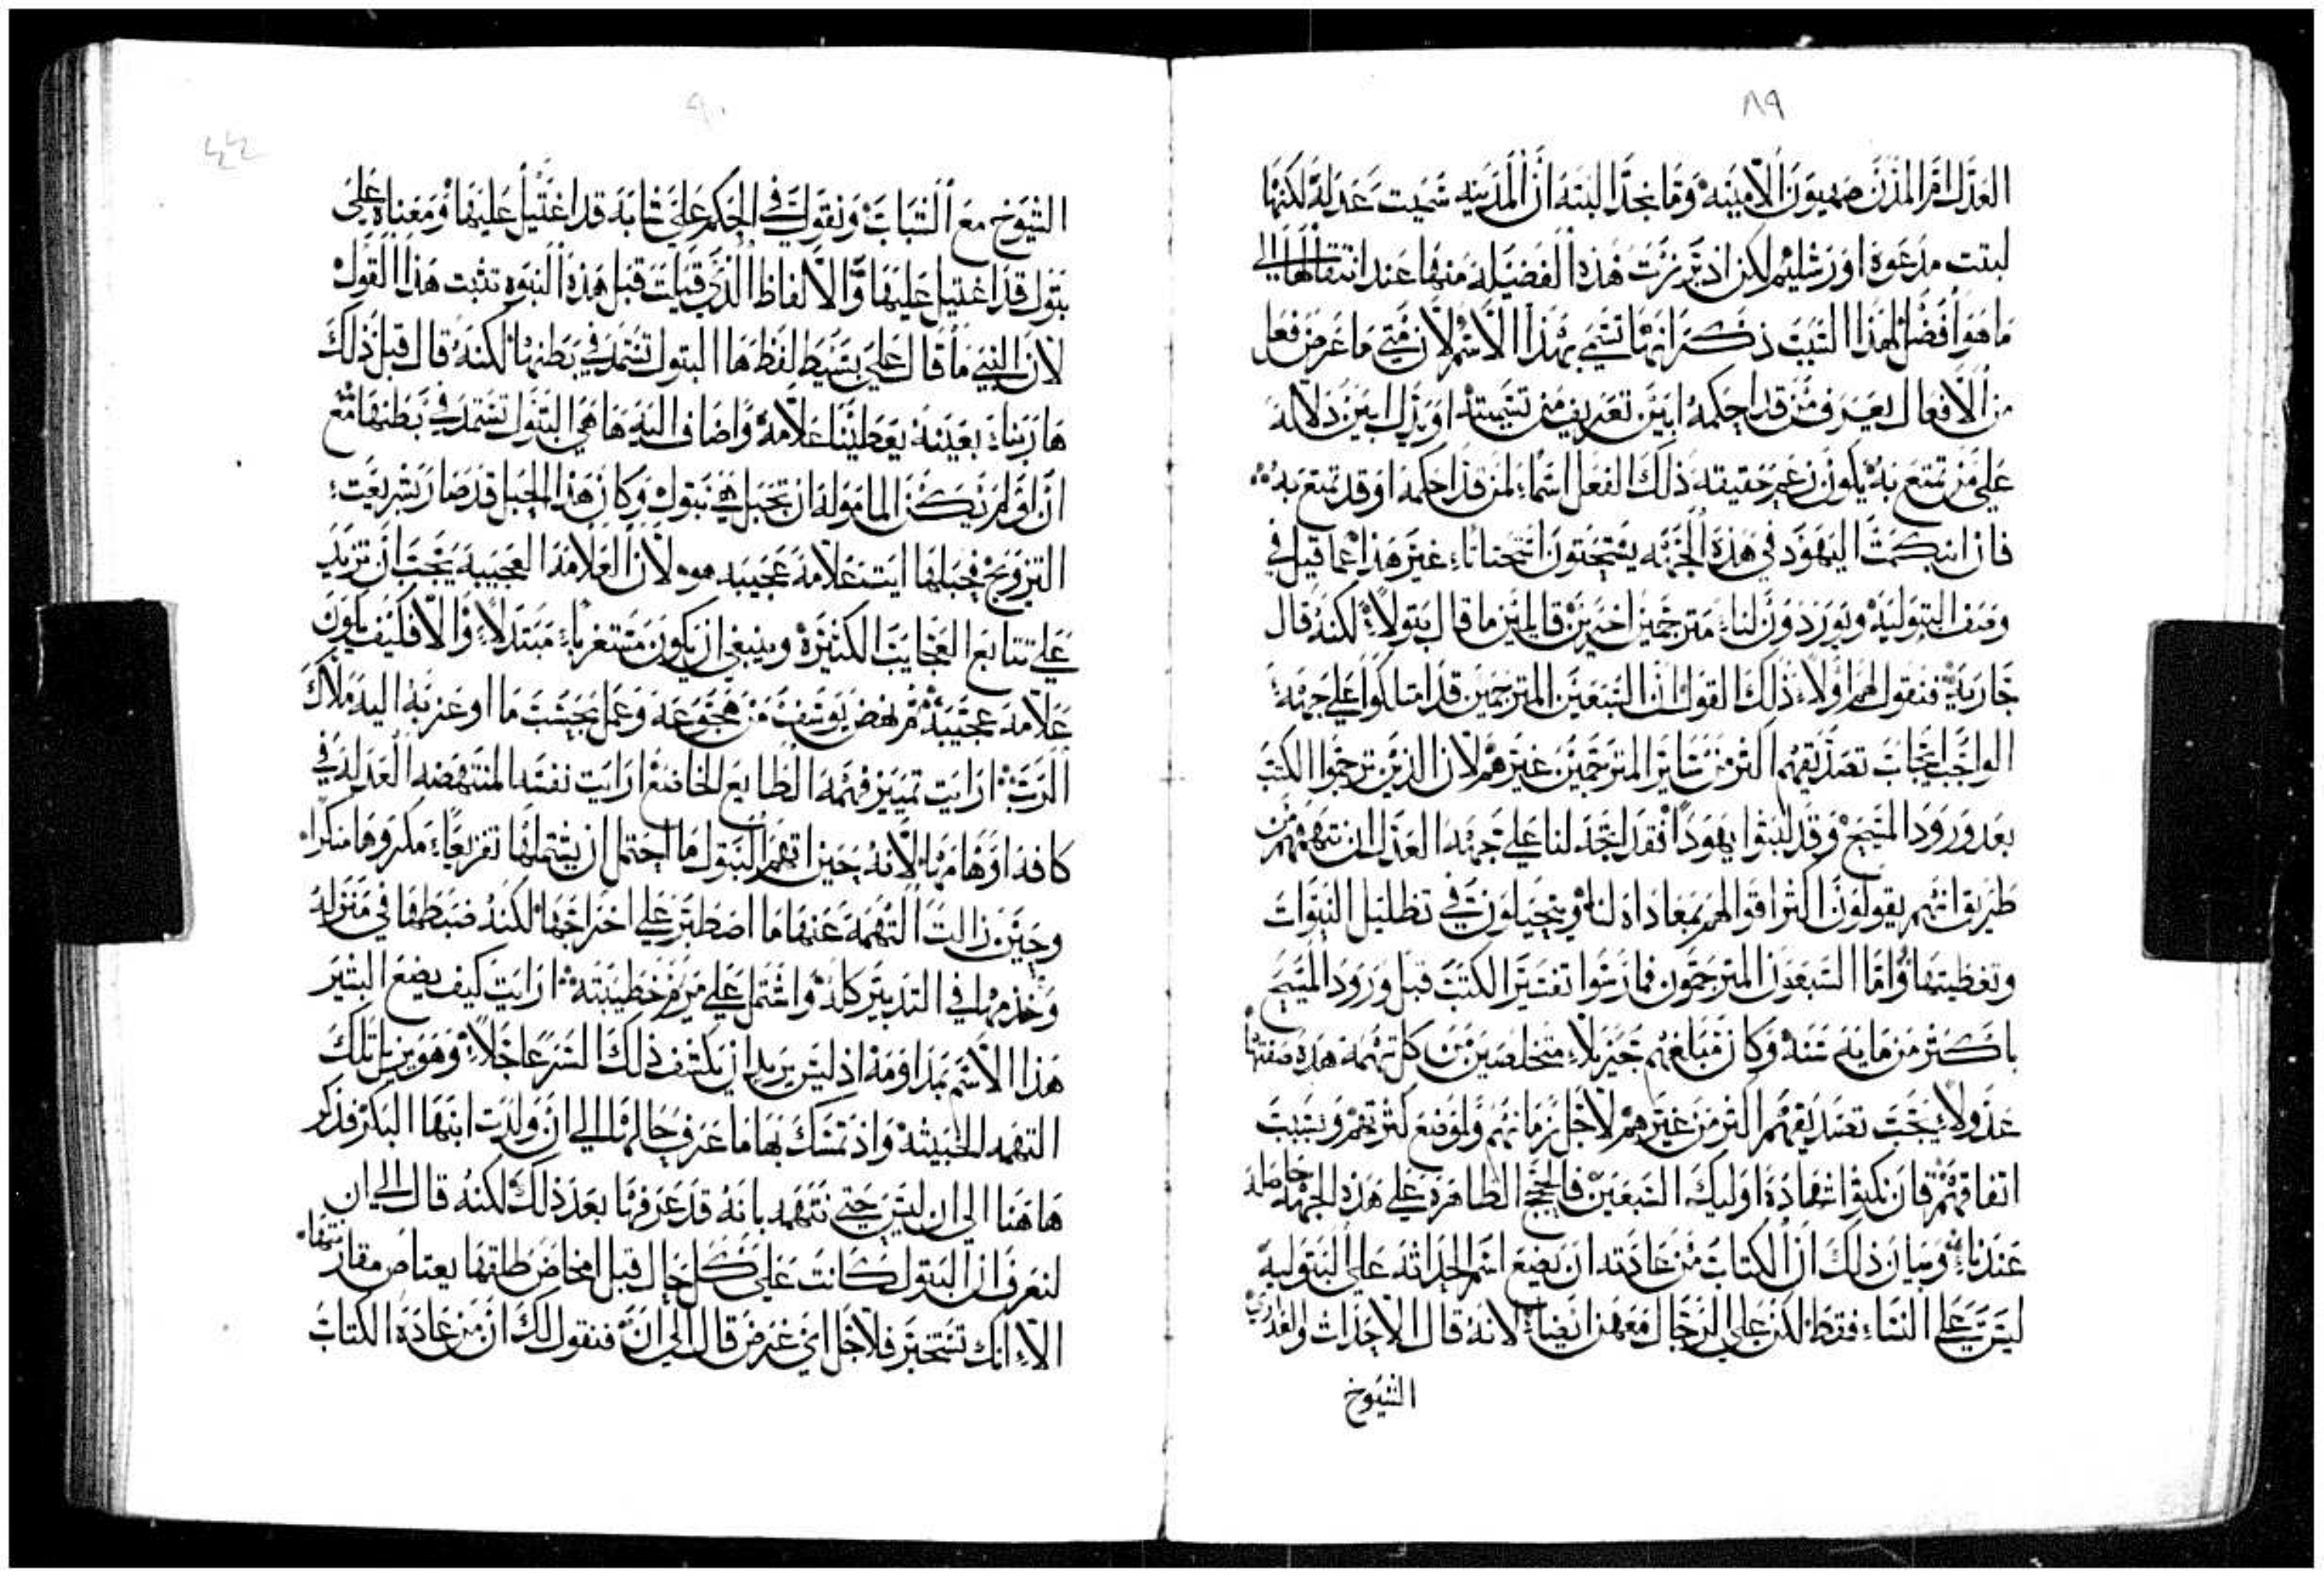 ٨٩
العدل ام المدن صهيون الامينه وما نجد البته ان المدينه سميت عدله لكنها
لبثت مدعوة اورشليم لكن اذ برزت هذه الفضيله منها عند انتقالها الي
ما هو افضل لهذا السبب ذكر انها تسمي بهذا الاسم لان متي ما عرض فعل
من الافعال يعرف من قد احكمه ابين تعريف من تسميته او يدل ابين دلاله
علي من تمتع به يكون زعم حقيقه ذلك الفعل اسماء لمن قد احكمه او قد تمتع به
فان ابكمت اليهود في هذه الجهه يستبحثون استبحثاء غير هذا عما قيل في
وصف البتوليه ويوردون لنا مترجمين اخرين قايلين ما قال بتولاً لكنه قال
جاريه فنقول لهم اولاً ذلك القول ان السبعين المترجمين قد امتلكوا علي جهه
الواجب ايجاب تصديقهم اكثر من ساير المترجمين غيرهم لان الذين ترجموا الكتب
بعد ورود المسيح وقد لبثوا يهودا فقد اتجه لنا علي جهه العدل ان نتهمهم من
طريق انهم يقولون اكثر اقوالهم بمعاداه لنا ويتحيلون في تظليل النبوات
وتغطيتها واما السبعون المترجمون فمارسوا تفسير الكتب قبل ورود المسيح
باكثر من مايه سنه وكان مبلغهم جزيلاً متخلصين من كل تهمه هذه صفتها
عدولاً يجب تصديقهم اكثر من غيرهم لاجل زمانهم ولموضع كثرتهم وبسبب
اتفاقهم فان نكبوا شهادة اوليك السبعين فالحجج الظاهرة علي هذه الجهه حاصله
عندنا وبيان ذلك ان الكتاب من عادته ان يضع اسم الحداثه علي البتوليه
ليس علي النساء فقط لكن علي الرجال معهن ايضاء لانه قال الاحداث والعذاري
الشيوخ
٩٠
٤٤
الشيوخ مع الشباب ونقول في الحكم علي شابه قد اغتيل عليها ومعناه علي
بتول قد اغتيل عليها والالفاظ الذي قيلت قبل هذه النبوه تثبت هذا القول
لان النبي ما قال علي بسيط لفظ ها البتول تشتمل في بطنها لكنه قال قبل ذلك
ها ربنا بعينه يعطينا علامه واضاف اليه ها هي البتول تستمد في بطنها مع
ان لو لم تكن المامولة ان تحبل هي بتول وكان هذا الحبل قد صار بشريعت
التزويج فحبلها ايت علامه عجيبه هو لان العلامه العجيبه يجب ان تزيد
علي تتابع العجايب الكثيره وينبغي ان يكون مستغرباء مبتدلاً والا فكيف يكون
علامه عجيبه ثم نهض يوسف من هجوعه وعمل بحسب ما اوعز به اليه ملاك
الرب ارايت تمييز فهمه الطايع الخاضع ارايت نفسه المنتهضه العدله في
كافه اوهامها لانه حين اتهم البتول ما احتمل ان يشملها تفزيعاء مكروها منكرا
وحين زالت التهمه عنها ما اصطبر علي اخراجها لكنه ضبطها في منزله
وخدمها في التدبير كله واشتمل علي مريم خطيبته ارايت كيف يضع البشير
هذا الاسم بمداومه اذ ليس يريد ان يكشف ذلك السر عاجلاً وهو يزيل تلك
التهمه الخبيثه واذ تمسك بها ما عرف حالها الي ان ولدت ابنها البكر فذكر
هاهنا الي ان ليس حتي نتهمه بانه قد عرفها بعد ذلك لكنه قال الي ان
لنعرف ان البتول كانت علي كل حال قبل امخاض طلقها يعتاص مقارشتها
الا انك تستخبر فلاجل اي غرض قال الي ان فنقول لك ان من عادة الكتاب